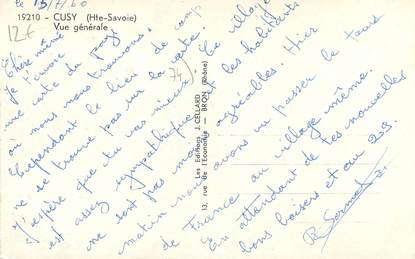 le 13/7/60
19210 - CUSY (Hte-Savoie)
Vue générale
12€
74
Chère mémé
Je t'envoie
une carte du pays
où nous nous trouvons.
Cependant le lieu de camp
ne se trouve pas sur la carte.
J'espère que tu vas mieux. Ce village
est assez sympathique et les habitants
ne sont pas mal agréables. Hier
matin nous avons vu passer le tour
de France au village même.
En attendant de tes nouvelles
bons baisers et au
R.
Les Editions J. CELLARD
13, rue de l'Economie - BRON (Rhône)